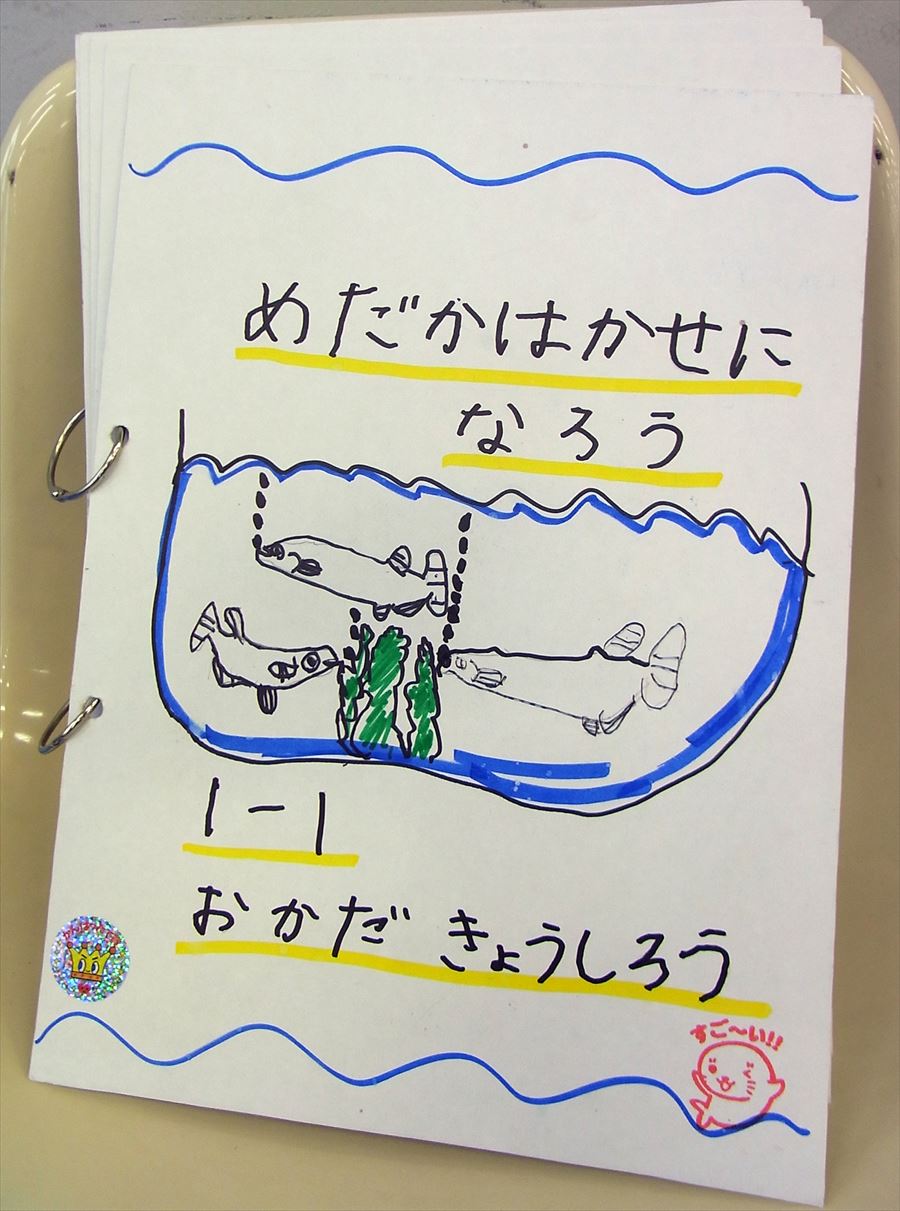 めだかはかせに
なろう
1-1
おかだ きょうしろう
すご〜い!!